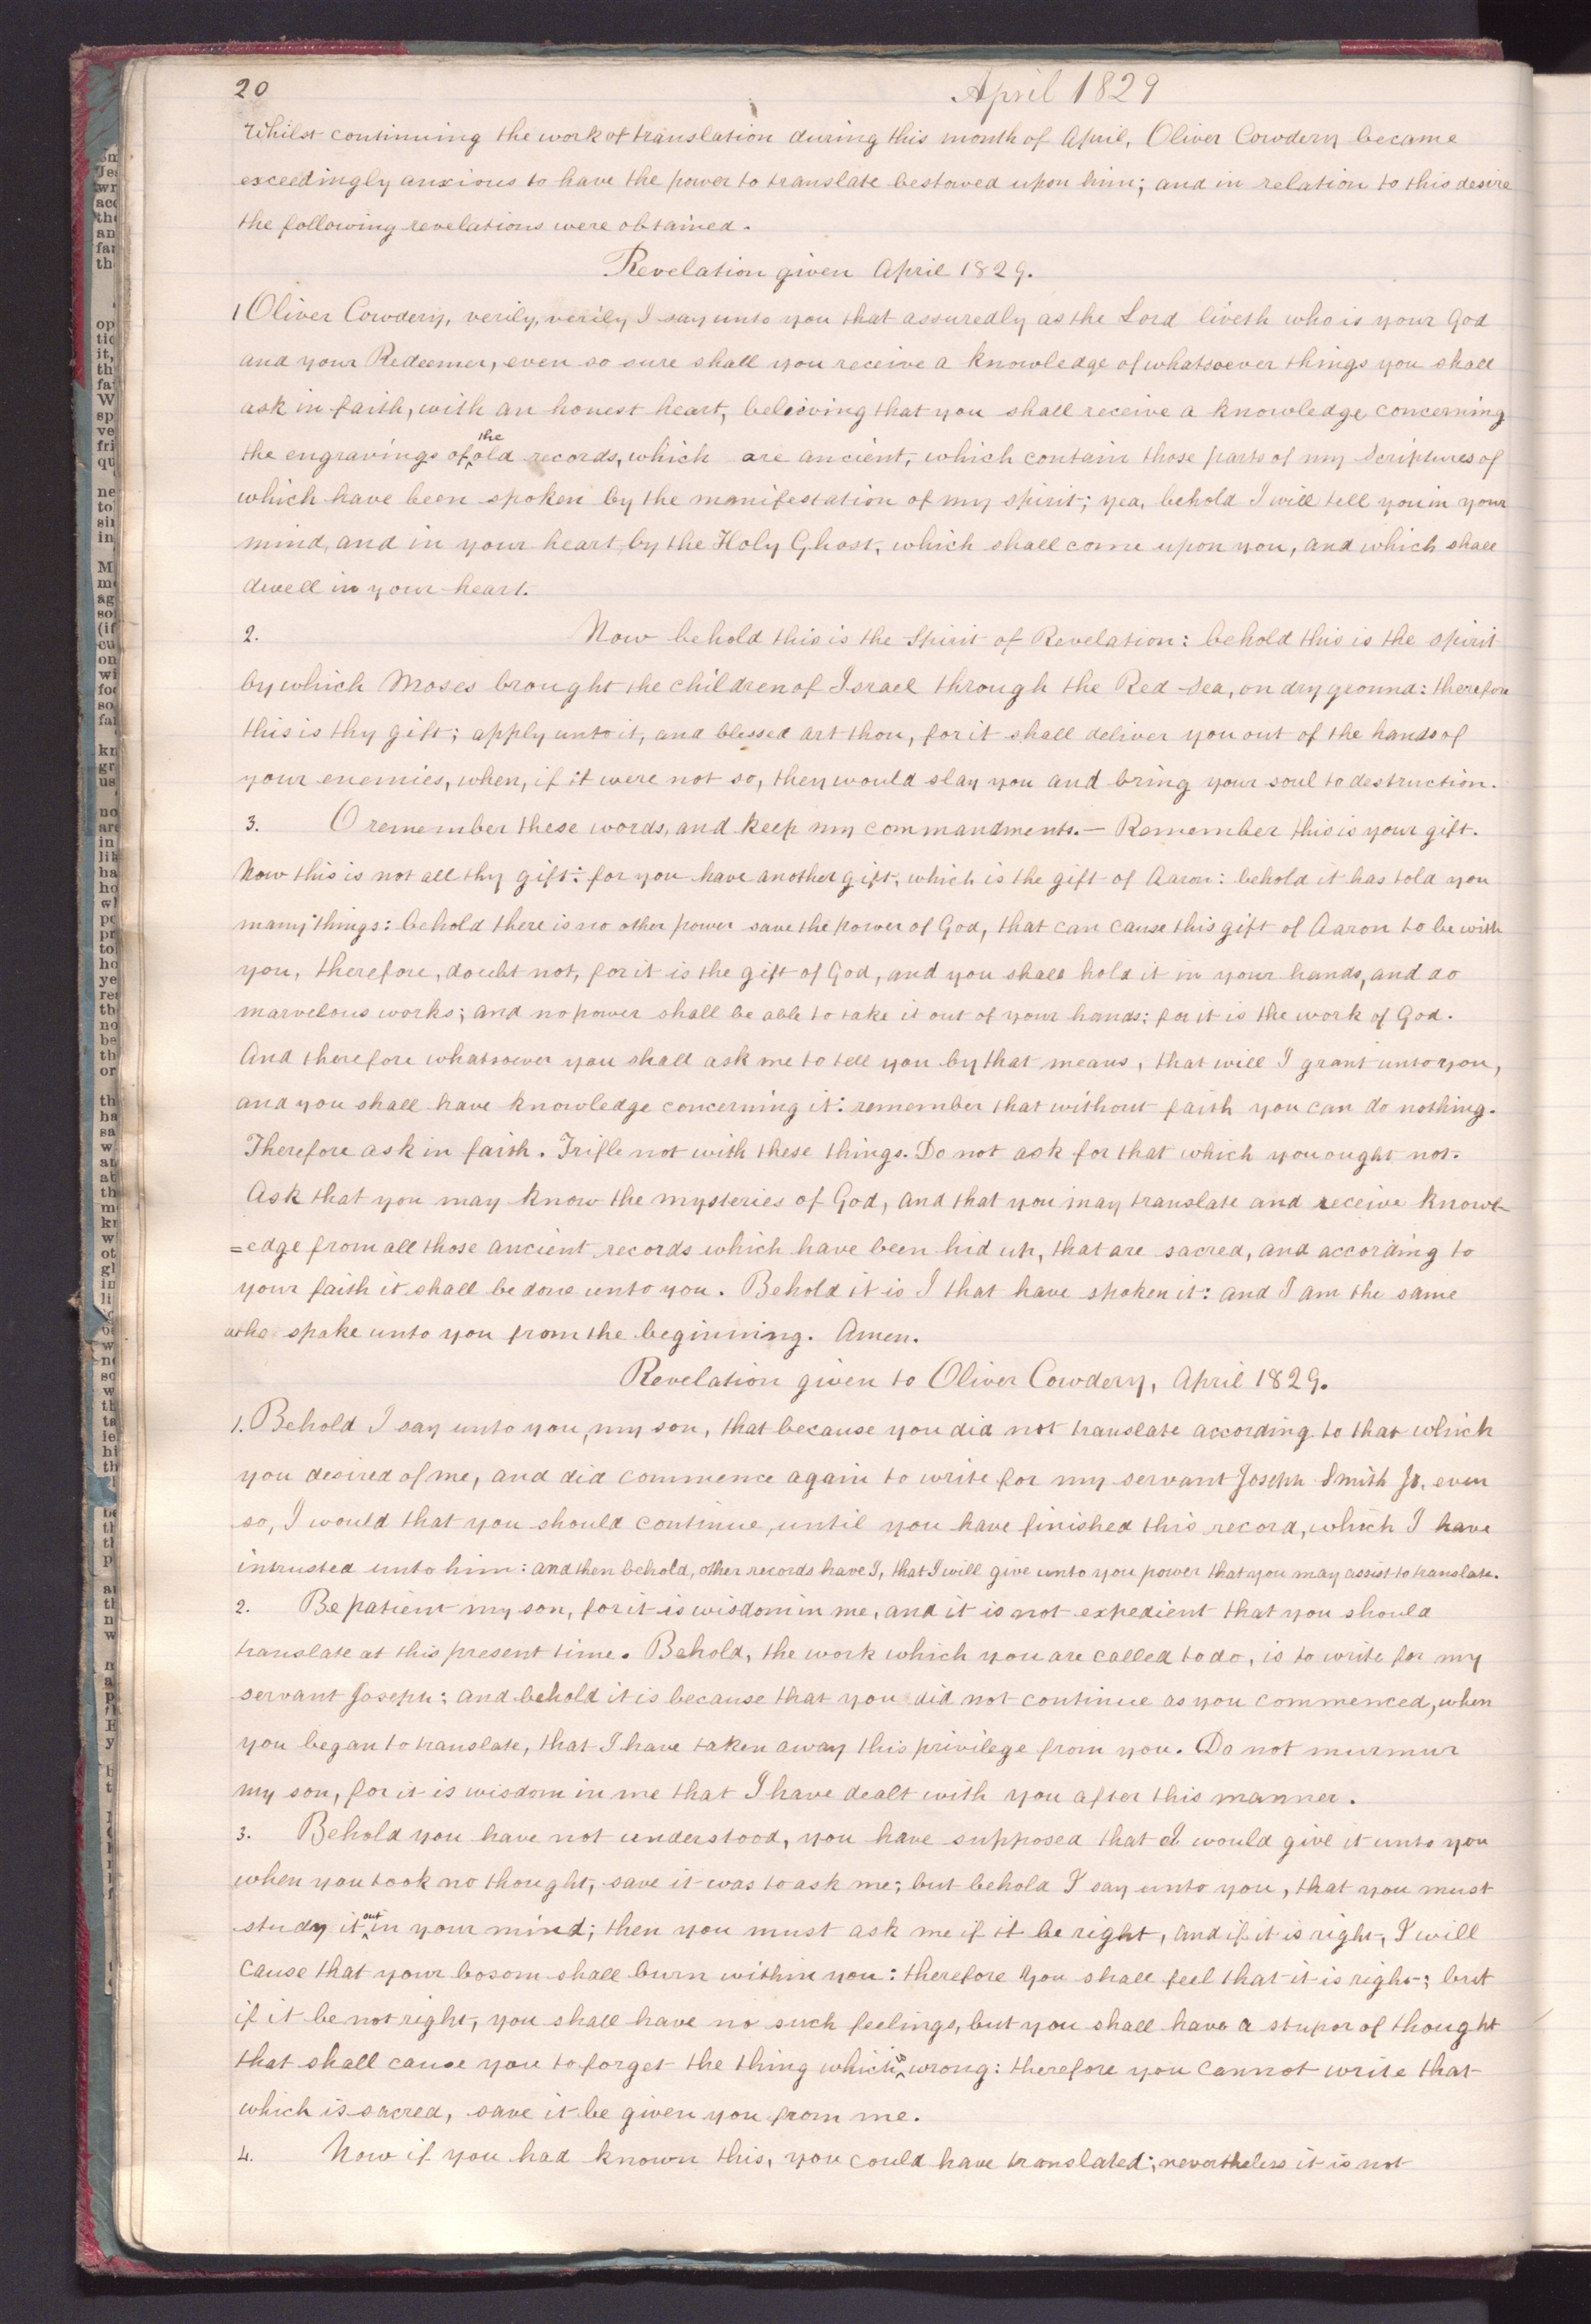 20
April 1829
Whilst continuing the work of translation during this month of April, Oliver Cowdery became
exceedingly anxious to have the power to translate bestowed upon him; and in relation to this desire
the following revelations were obtained.
Revelation given April 1829.
1 Oliver Cowdery, verily, verily I say unto you that assuredly as the Lord liveth who is your God
and your Redeemer, even so sure shall you receive a knowledge of whatsoever things you shall
ask in faith, with an honest heart, believing that you shall receive a knowledge concerning
the engravings of the old records, which are ancient, which contain those parts of my Scriptures of
which have been spoken by the manifestation of my spirit; yea, behold I will tell you in your
mind, and in your heart by the Holy Ghost, which shall come upon you, and which shall
dwell in your heart.
2. Now behold this is the Spirit of Revelation: behold this is the spirit
by which Moses brought the children of Israel through the Red Sea, on dry ground: therefore
this is thy gift; apply unto it, and blessed art thou, for it shall deliver you out of the hands of
your enemies, when, if it were not so, they would slay you and bring your soul to destruction.
3. O remember these words, and keep my commandments.— Remember this is your gift.
Now this is not all thy gift: for you have another gift, which is the gift of Aaron: behold it has told you
many things: behold there is no other power save the power of God, that can cause this gift of Aaron to be with
you, therefore, doubt not, for it is the gift of God, and you shall hold it in your hands, and do
marvelous works; and no power shall be able to take it out of your hands; for it is the work of God.
And therefore whatsoever you shall ask me to tell you by that means, that will I grant unto you,
and you shall have knowledge concerning it: remember that without faith you can do nothing.
Therefore ask in faith. Trifle not with these things. Do not ask for that which you ought not.
Ask that you may know the mysteries of God, and that you may translate and receive knowl-
=edge from all those ancient records which have been hid up, that are sacred, and according to
your faith it shall be done unto you. Behold it is I that have spoken it: and I am the same
who spake unto you from the beginning. Amen.
Revelation given to Oliver Cowdery, April 1829.
1. Behold I say unto you, my son, that because you did not translate according to that which
you desired of me, and did commence again to write for my servant Joseph Smith Jr. even
so, I would that you should continue, until you have finished this record, which I have
intrusted unto him: and then behold, other records have I, that I will give unto you power that you may assist to translate.
2. Be patient my son, for it is wisdom in me, and it is not expedient that you should
translate at this present time. Behold, the work which you are called to do, is to write for my
servant Joseph; and behold it is because that you did not continue as you commenced, when
you began to translate, that I have taken away this privilege from you. Do not murmur
my son, for it is wisdom in me that I have dealt with you after this manner.
3. Behold you have not understood, you have supposed that I would give it unto you
when you took no thought, save it was to ask me; but behold I say unto you, that you must
study it out in your mind; then you must ask me if it be right, and if it is right, I will
cause that your bosom shall burn within you: therefore you shall feel that it is right; but
if it be not right, you shall have no such feelings, but you shall have a stupor of thought
that shall cause you to forget the thing which is wrong: therefore you cannot write that
which is sacred, save it be given you from me.
4. Now if you had known this, you could have translated; nevertheless it is not